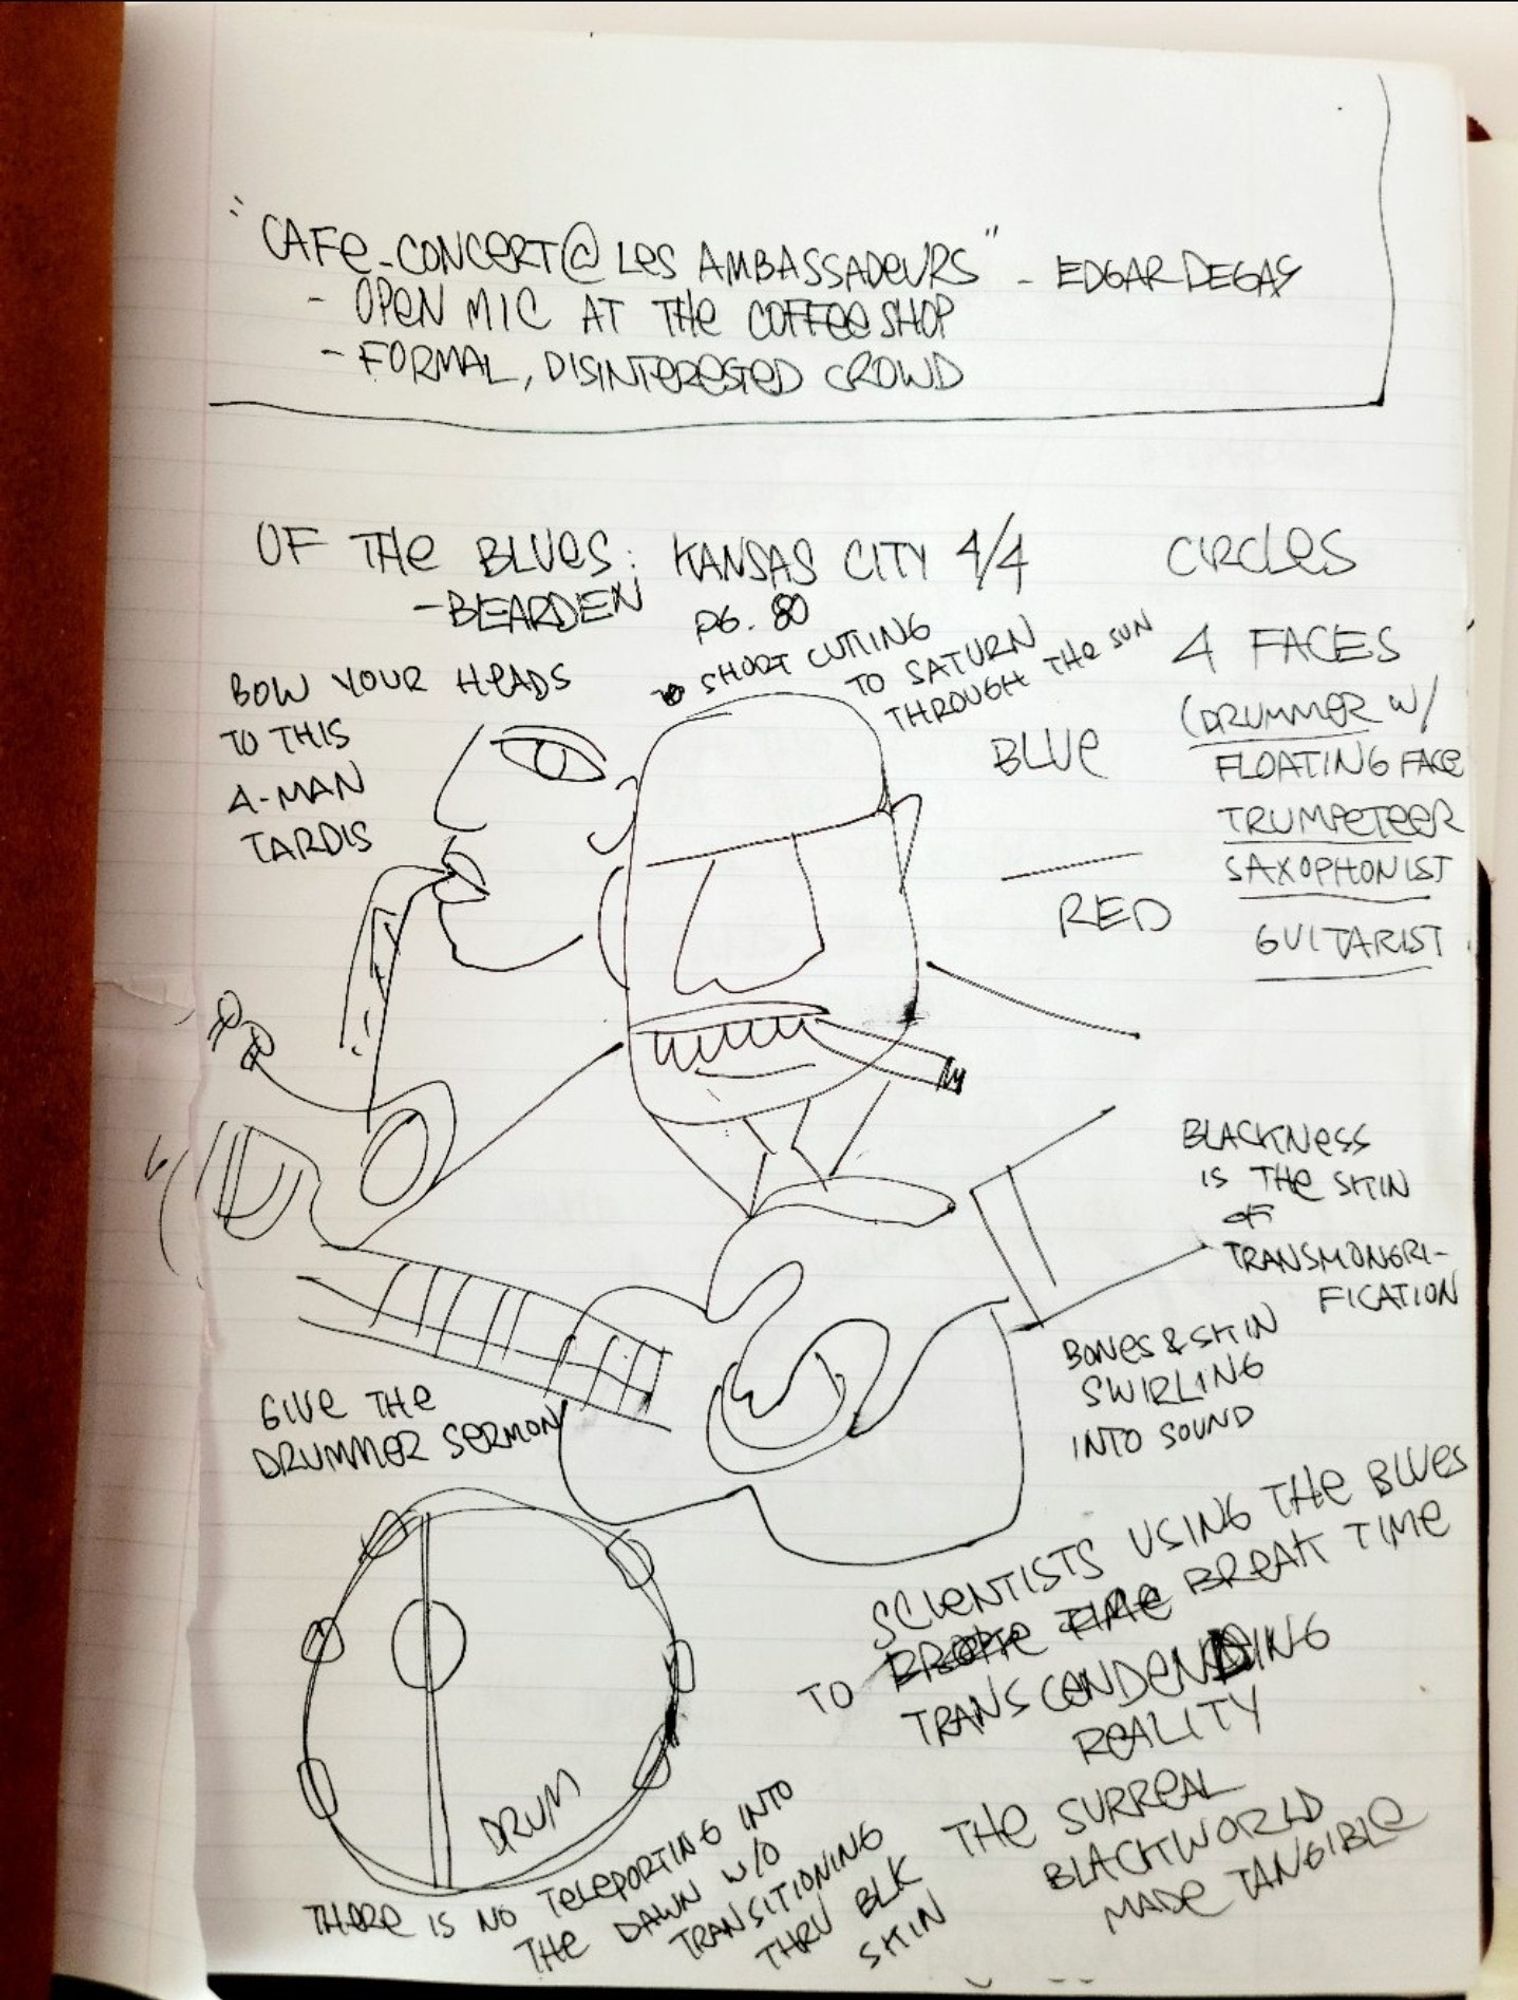 "CAFE-CONCERT @ LES AMBASSADEURS" - EDGAR DEGAS
- OPEN MIC AT THE COFFEE SHOP
- FORMAL, DISINTERESTED CROWD
OF THE BLUES: KANSAS CITY 4/4
-BEARDEN
PG. 80
SHORT CUTTING
TO SATURN
THROUGH THE SUN
CIRCLES
4 FACES
(DRUMMER W/
FLOATING FACE
TRUMPETEER
SAXOPHONIST
GUITARIST
BOW YOUR HEADS
TO THIS
4-MAN
TARDIS
BLUE
RED
BLACKNESS
IS THE SKIN
OF
TRANSMONGRI-
FICATION
BONES & SKIN
SWIRLING
INTO SOUND
GIVE THE
DRUMMER SERMON
SCIENTISTS USING THE BLUES
TO BROKE TIME BREAK TIME
TRANSCENDENDING
REALITY
THE SURREAL
BLACKWORLD
MADE TANGIBLE
DRUM
THERE IS NO TELEPORTING INTO
THE DAWN W/O
TRANSITIONING
THRU BLK
SKIN